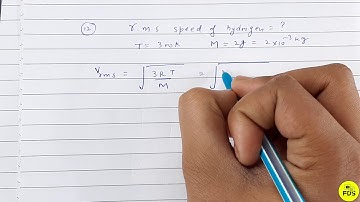 12 r m s speed of hydrogen = ?
T = 300k M = 2g = 2 x 10⁻³ kg
Vrms = √(3RT/M) = √
FDS